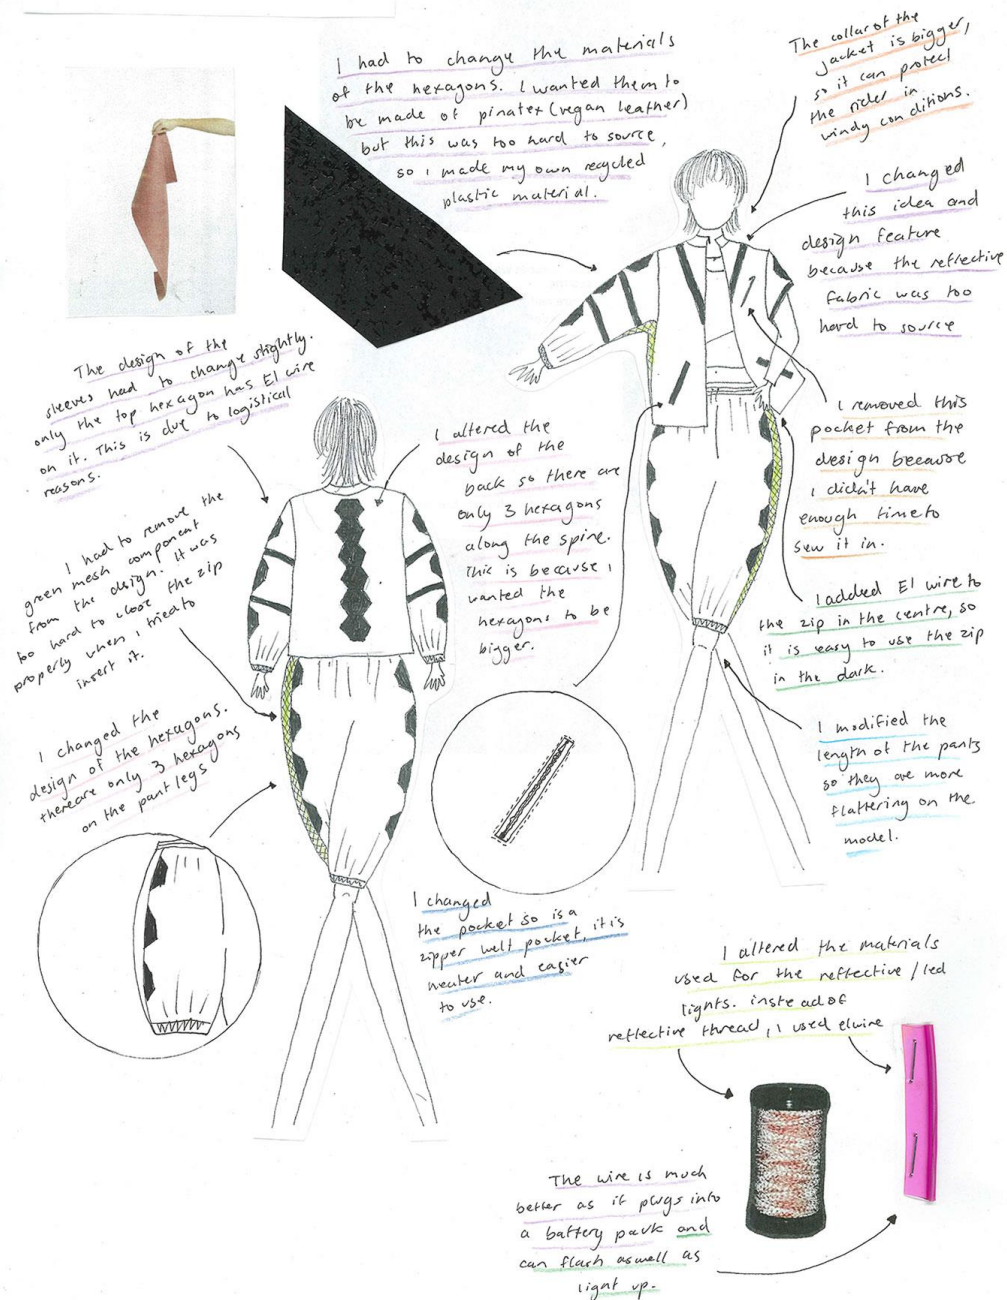 I had to change the materials
of the hexagons. I wanted them to
be made of pinatex (vegan leather)
but this was too hard to source,
so I made my own recycled
plastic material.
The collar of the
jacket is bigger,
so it can protect
the rider in
windy conditions.
I changed
this idea and
design feature
because the reflective
fabric was too
hard to source
The design of the
sleeves had to change slightly.
only the top hexagon has El wire
on it. This is due to logistical
reasons.
I altered the
design of the
back so there are
only 3 hexagons
along the spine.
This is because I
wanted the
hexagons to be
bigger.
I removed this
pocket from the
design because
I didn't have
enough time to
sew it in.
I had to remove the
green mesh component
from the design. It was
too hard to close the zip
properly when I tried to
insert it.
I added El wire to
the zip in the centre, so
it is easy to use the zip
in the dark.
I changed the
design of the hexagons.
there are only 3 hexagons
on the pant legs
I modified the
length of the pants
so they are more
flattering on the
model.
I changed
the pocket so is a
zipper welt pocket, it is
neater and easier
to use.
I altered the materials
used for the reflective / led
lights. instead of
reflective thread, I used el wire
The wire is much
better as it plugs into
a battery pack and
can flash aswell as
light up.